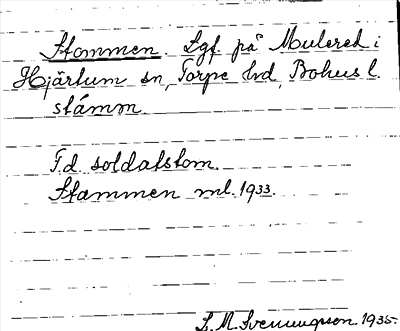 Stommen. Lgf på Mulered i
Hjärtum sn, Torpe hd, Bohus l.
stámm.
F.d. soldatstom.
Stammen ml. 1933.
S. M. Svenungson. 1935.